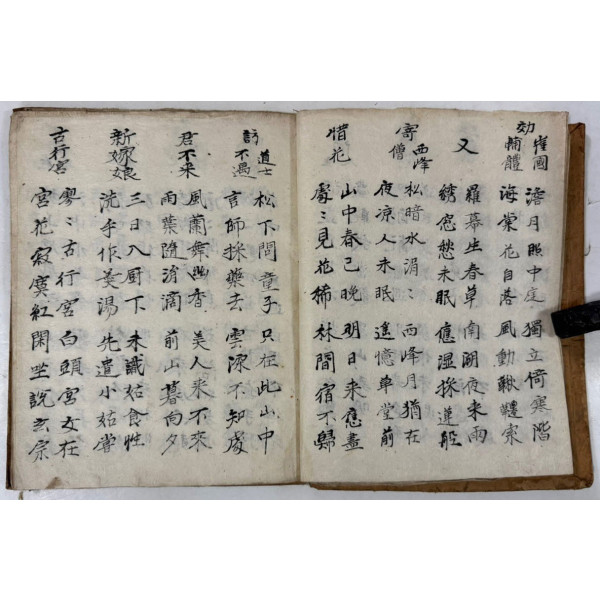 効崔國輔體
澹月照中庭 獨立倚寒階
海棠花自落 風動鞦韆索
又
羅幕生春草 南湖夜来雨
綉窓愁未眠 應湿採蓮船
寄西峰僧
松暗水涓〻 西峰月猶在
夜凉人未眠 遥憶草堂前
惜花
山中春已晚 明日来應盡
處〻見花稀 林間宿不歸
訪道士不遇
松下問童子 只在此山中
言師採藥去 雲深不知處
君不来
風蘭舞幽香 美人来不来
雨葉隨消滴 前山暮向夕
新嫁娘
三日入厨下 未識姑食性
洗手作羹湯 先遣小姑嘗
古行宮
寥〻古行宮 白頭宮女在
宮花寂寞紅 閑坐説玄宗